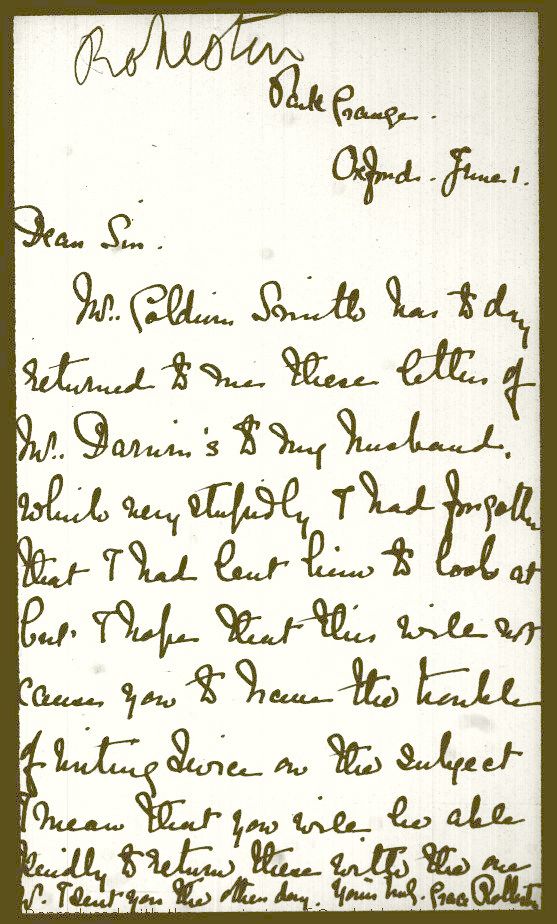 Rolleston
Park Grange.
Oxford. June 1.
Dear Sir.
Mr. Goldwin Smith has to day
returned to me these letters of
Mr. Darwin's to my husband.
which very stupidly I had forgotten
that I had lent him to look at
but I hope that this will not
cause you to have the trouble
of writing twice on the subject
I mean that you will be able
kindly to return these with the one
I sent you the other day. Yours truly. Grace Rolleston
Reproduced with the